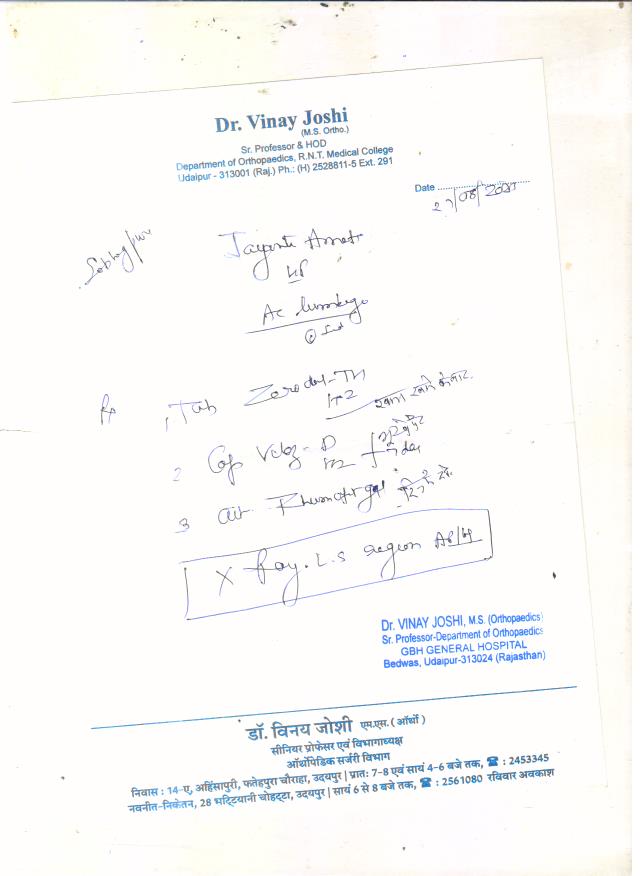 Dr. Vinay Joshi
(M.S. Ortho.)
Sr. Professor & HOD
Department of Orthopaedics, R.N.T. Medical College
Udaipur - 313001 (Raj.) Ph.: (H) 2528811-5 Ext. 291
Date
Jayanti
Ac lumbago
Rx
1, Tab Zerodol-TH
1+2
खाना खाने के बाद
2 Cap Veloz-D
7 day
3 Oit Rhumafit gel
X Ray. L.S region AP/
Dr. VINAY JOSHI, M.S. (Orthopaedics)
Sr. Professor-Department of Orthopaedics
GBH GENERAL HOSPITAL
Bedwas, Udaipur-313024 (Rajasthan)
डॉ. विनय जोशी एम.एस. ( ऑर्थो )
सीनियर प्रोफेसर एवं विभागाध्यक्ष
ऑर्थोपेडिक सर्जरी विभाग
निवास : 14-ए, अहिंसापुरी, फतेहपुरा चौराहा, उदयपुर | प्रातः 7-8 एवं सायं 4-6 बजे तक, ☎ : 2453345
नवनीत-निकेतन, 28 भट्टियानी चोहट्टा, उदयपुर | सायं 6 से 8 बजे तक, ☎ : 2561080 रविवार अवकाश